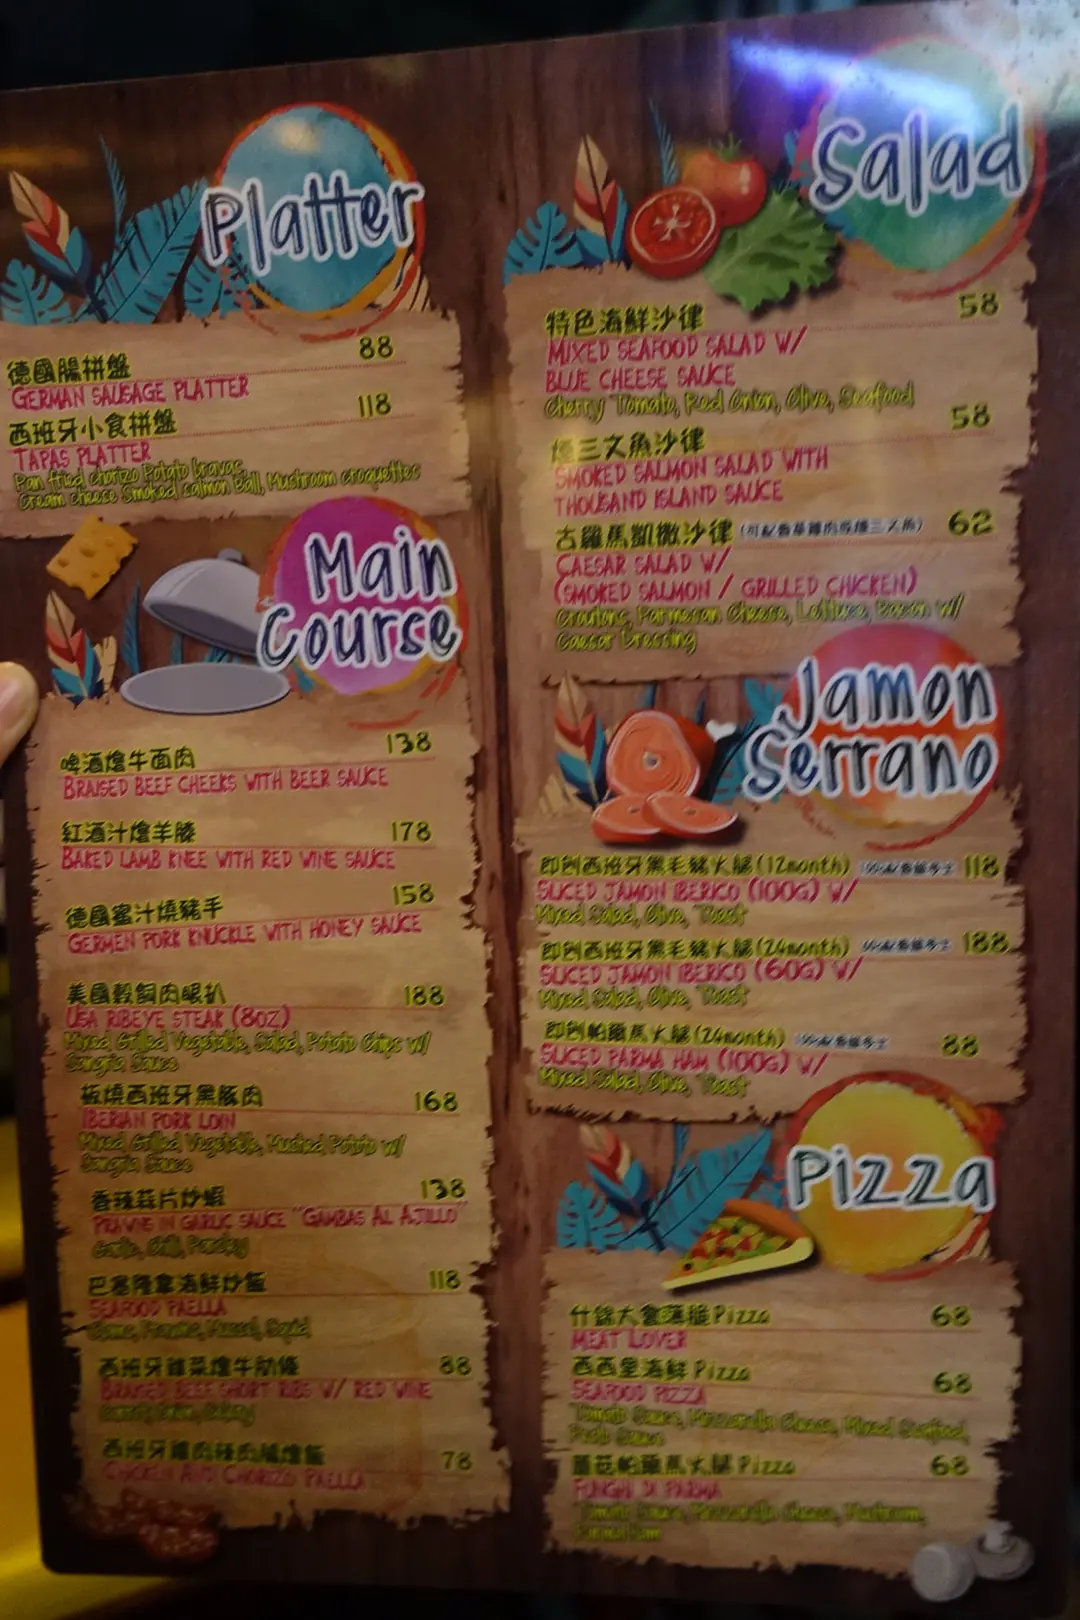 Platter
德國腸拼盤 88
GERMAN SAUSAGE PLATTER
西班牙小食拼盤 118
TAPAS PLATTER
Pan fried chorizo Potato bravas
Cream cheese Smoked salmon Ball, Mushroom croquettes
Main
Course
啤酒燴牛面肉 138
BRAISED BEEF CHEEKS WITH BEER SAUCE
紅酒汁燴羊膝 178
BAKED LAMB KNEE WITH RED WINE SAUCE
德國蜜汁燒豬手 158
GERMEN PORK KNUCKLE WITH HONEY SAUCE
美國穀飼肉眼扒 188
USA RIBEYE STEAK (8OZ)
Mixed Grilled Vegetable, Salad, Potato Chips w/
Sangria Sauce
板燒西班牙黑豚肉 168
IBERIAN PORK LOIN
Mixed Grilled Vegetable, Mashed Potato w/
Sangria Sauce
香辣蒜片炒蝦 138
PRAWNS IN GARLIC SAUCE "GAMBAS AL AJILLO"
Garlic, Chili, Parsley
巴塞隆拿海鮮炒飯 118
SEAFOOD PAELLA
Prawns, Mussel, Squid
西班牙雜菜燴牛肋條 88
BRAISED BEEF SHORT RIBS W/ RED WINE
西班牙雞肉辣肉腸燴飯 78
CHICKEN AND CHORIZO PAELLA
Salad
特色海鮮沙律 58
MIXED SEAFOOD SALAD W/
BLUE CHEESE SAUCE
Cherry Tomato, Red Onion, Olive, Seafood
煙三文魚沙律 58
SMOKED SALMON SALAD WITH
THOUSAND ISLAND SAUCE
古羅馬凱撒沙律 (可配香草雞肉或煙三文魚) 62
CAESAR SALAD W/
(SMOKED SALMON / GRILLED CHICKEN)
Croutons, Parmesan Cheese, Lettuce, Bacon w/
Caesar Dressing
Jamon
Serrano
即刨西班牙黑毛豬火腿 (12month) 118
SLICED JAMON IBERICO (100G) W/
Mixed Salad, Olive, Toast
即刨西班牙黑毛豬火腿 (24month) 188
SLICED JAMON IBERICO (60G) W/
Mixed Salad, Olive, Toast
即刨帕爾馬火腿 (24month) 88
SLICED PARMA HAM (100G) W/
Mixed Salad, Olive, Toast
Pizza
什錦大會薄脆Pizza 68
MEAT LOVER
西西里海鮮Pizza 68
SEAFOOD PIZZA
Tomato Sauce, Mozzarella Cheese, Mixed Seafood,
Pesto Sauce
蘑菇帕爾馬火腿Pizza 68
FUNGHI DI PARMA
Tomato Sauce, Mozzarella Cheese, Mushroom,
Parma Ham